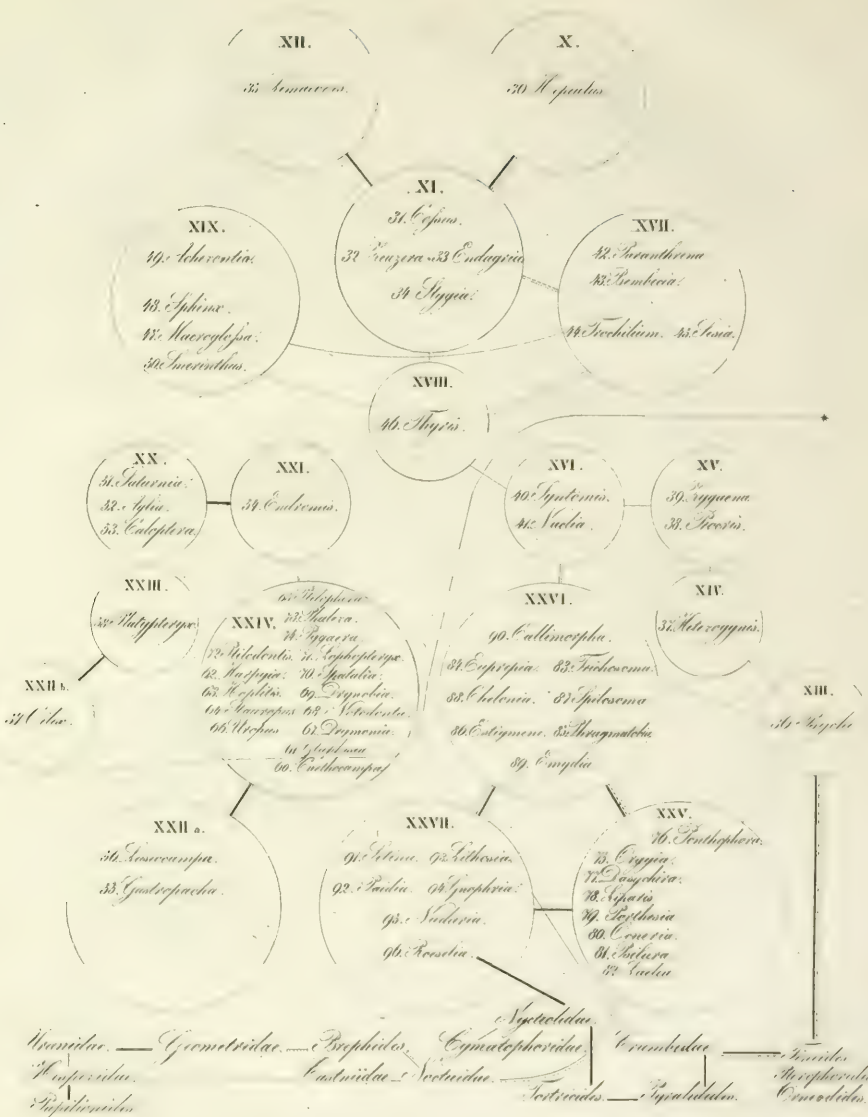 XII.
X.
35. Limacodes.
30. Hepialus.
XI.
31. Cossus.
32. Zeuzera. 33. Endagria
34. Stygia.
XIX.
49. Acherontia.
48. Sphinx.
47. Macroglossa.
50. Smerinthus.
XVII.
42. Paranthrena
43. Bembecia.
44. Trochilium. 45. Sesia.
XVIII.
46. Thyris.
XX.
51. Saturnia.
52. Aglia.
53. Caloptera.
XXI.
54. Endromis.
XVI.
40. Syntomis.
41. Naclia.
XV.
39. Zygaena
38. Procris.
XXIII.
58. Platypteryx.
XXIV.
73. Phalera.
74. Pygaera.
72. Ptilodontis. 71. Lophopteryx.
62. Harpyia. 70. Spatalia.
63. Hoplitis. 69. Drynobia.
64. Stauropus. 68. Notodonta.
66. Uropus. 67. Drymonia.
61.
60. Cnethocampa
XXVI.
90. Callimorpha.
84. Euprepia. 83. Trichosoma.
88. Chelonia. 87. Spilosoma
86. Estigmene. 85. Phragmatobia
89. Emydia
XIV.
37. Heterogynis.
XXII b.
57. Cilix.
XIII.
36. Psyche
XXII a.
56. Lasiocampa.
55. Gastropacha.
XXVII.
91. Setina. 93. Lithosia.
92. Paidia. 94. Gnophria.
95. Nudaria.
96. Roeselia.
XXV.
76. Penthophora.
75. Orgyia.
77. Dasychira.
78. Liparis
79. Porthesia
80. Cneria.
81. Psilura
82. Laelia
Nycteolidae.
Uranidae. Geometridae. Brephides. Cymatophoridae. Crambidae
Hesperidae. Castniidae Noctuidae. Tineides
Pterophorides
Papilionides Tortricides. Pyralidides.